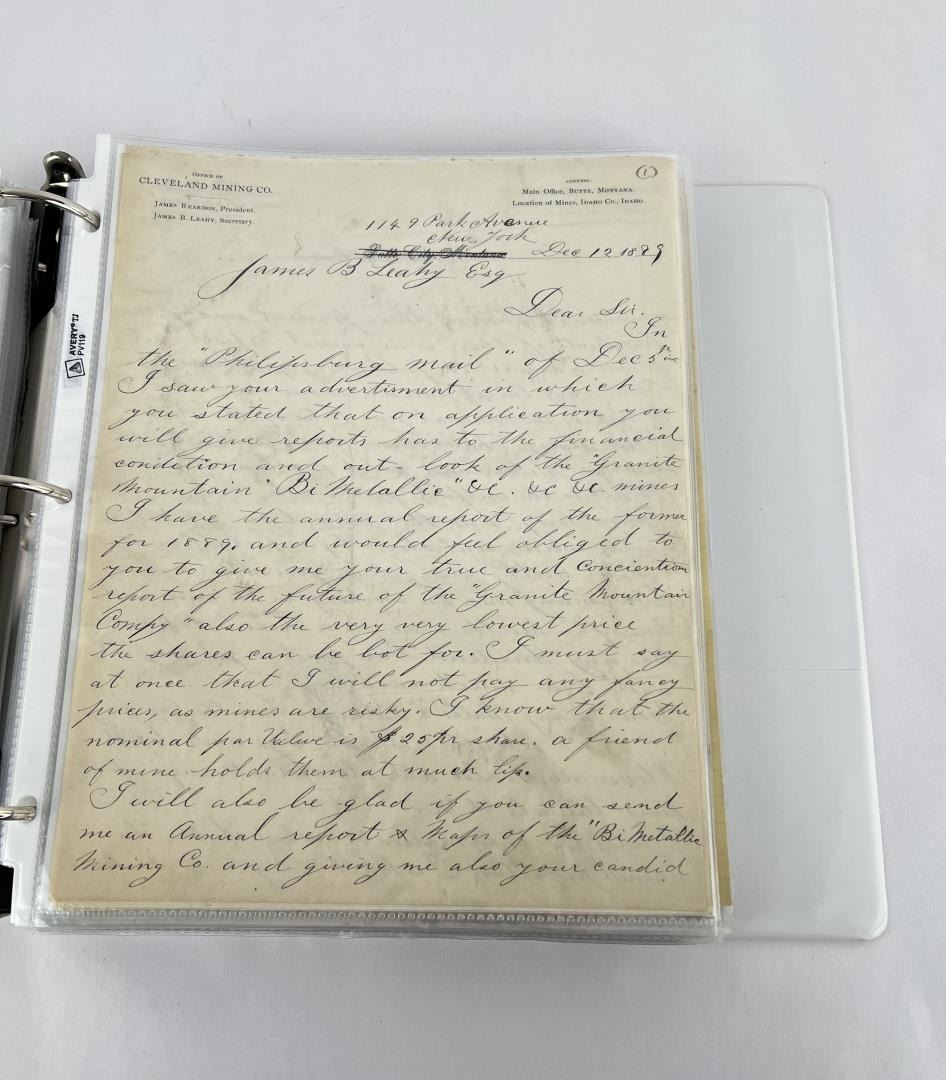 OFFICE OF
CLEVELAND MINING CO.
JAMES REARDON, President.
JAMES B. LEAHY, Secretary.
ADDRESS:
Main Office, BUTTE, MONTANA.
Location of Mines, IDAHO CO., IDAHO.
1
1149 Park Avenue
New York
Butte City, Montana Dec 12 1889
James B Leahy Esq.
Dear Sir.
In
the "Philipsburg mail" of Dec 5th
I saw your advertisment in which
you stated that on application you
will give reports has to the financial
condition and out-look of the "Granite
Mountain" Bi Metallic" &c. &c &c. mines
I have the annual report of the former
for 1889. and would feel obliged to
you to give me your true and
report of the future of the "Granite Mountain
Compy" also the very very lowest price
the shares can be bot for. I must say
at once that I will not pay any fancy
prices, as mines are risky. I know that the
nominal par Value is $25 pr share. a friend
of mine holds them at much
I will also be glad if you can send
me an Annual report & Maps of the "Bi Metallic
Mining Co. and giving me also your candid
AVERY
PV119